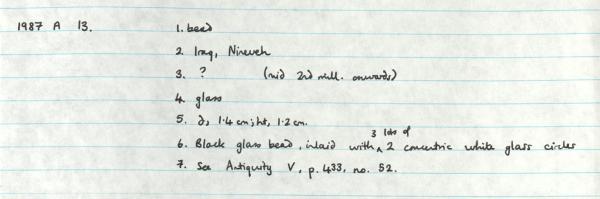 1987 A 13. 1. bead
2. Iraq, Nineveh
3. ? (mid 2nd mill. onwards)
4. glass
5. D, 1.4 cm; ht, 1.2 cm.
6. Black glass bead, inlaid with ^ 3 lots of 2 concentric white glass circles
7. See Antiquity V, p. 433, no. 52.